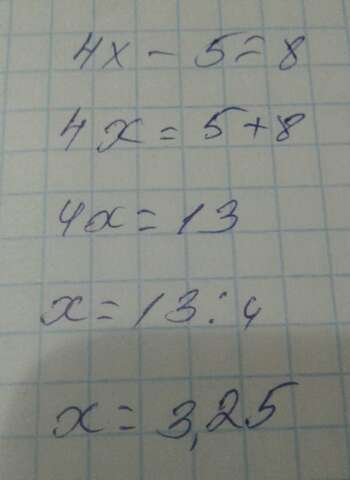 4x - 5 = 8
4x = 5 + 8
4x = 13
x = 13 : 4
x = 3,25